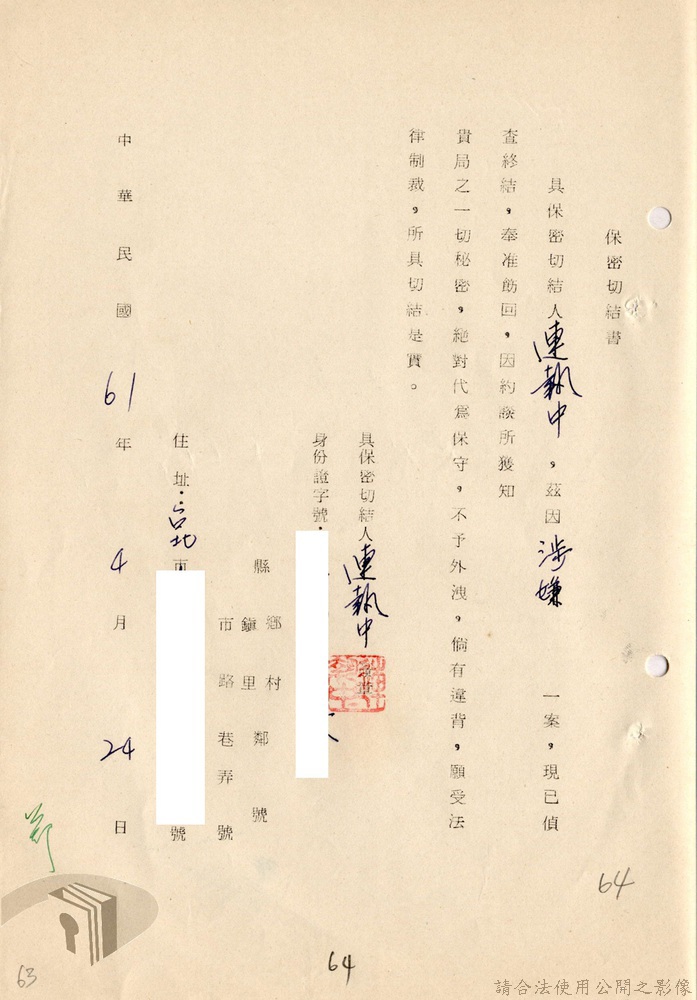 保密切結書
具保密切結人連執中，茲因涉嫌一案，現已偵
查終結，奉准飭回，因約談所獲知
貴局之一切秘密，絕對代為保守，不予外洩，倘有違背，願受法
律制裁，所具切結是實。
具保密切結人連執中
身份證字號：
縣鄉村鄰號
鎮里
市路巷弄號
住址：台北市號
中華民國61年4月24日
64
64
63
請合法使用公開之影像